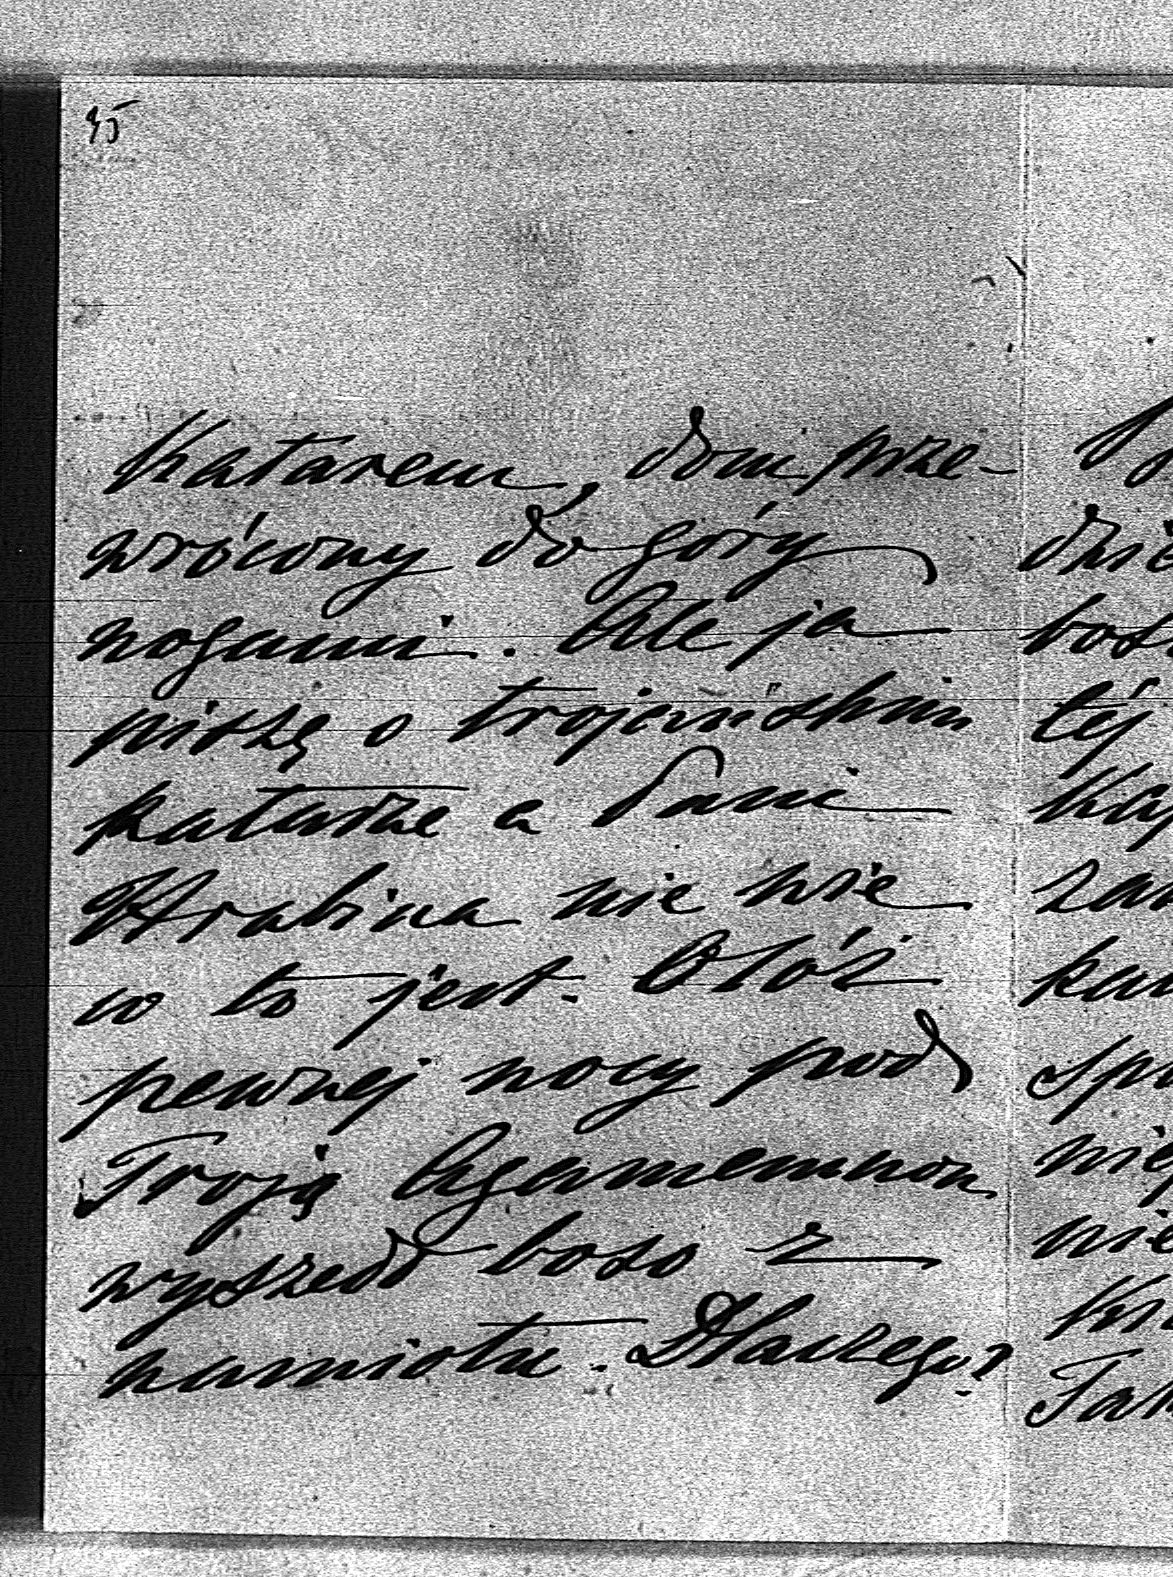 45
katarem, dom prze-
wrócony do góry
nogami. Ale ja
piszę o trojańskim
katarze a Pani
Hrabina nie wie
co to jest. Otóż
pewnej nocy pod
Troją Agamemnon
wyszedł boso z
namiotu. Dlaczego?